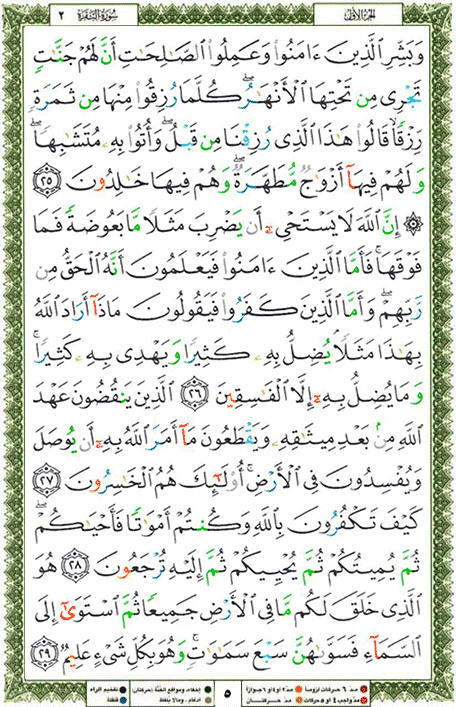 الجزء الأول
سورة البقرة ٢
وَبَشِّرِ ٱلَّذِينَ ءَامَنُوا۟ وَعَمِلُوا۟ ٱلصَّـٰلِحَـٰتِ أَنَّ لَهُمْ جَنَّـٰتٍ
تَجْرِى مِن تَحْتِهَا ٱلْأَنْهَـٰرُ ۖ كُلَّمَا رُزِقُوا۟ مِنْهَا مِن ثَمَرَةٍ
رِّزْقًا ۙ قَالُوا۟ هَـٰذَا ٱلَّذِى رُزِقْنَا مِن قَبْلُ ۖ وَأُتُوا۟ بِهِۦ مُتَشَـٰبِهًا ۖ
وَلَهُمْ فِيهَآ أَزْوَٰجٌ مُّطَهَّرَةٌ ۖ وَهُمْ فِيهَا خَـٰلِدُونَ ٢٥
۞ إِنَّ ٱللَّهَ لَا يَسْتَحْىِۦٓ أَن يَضْرِبَ مَثَلًا مَّا بَعُوضَةً فَمَا
فَوْقَهَا ۚ فَأَمَّا ٱلَّذِينَ ءَامَنُوا۟ فَيَعْلَمُونَ أَنَّهُ ٱلْحَقُّ مِن
رَّبِّهِمْ ۖ وَأَمَّا ٱلَّذِينَ كَفَرُوا۟ فَيَقُولُونَ مَاذَآ أَرَادَ ٱللَّهُ
بِهَـٰذَا مَثَلًا ۘ يُضِلُّ بِهِۦ كَثِيرًا وَيَهْدِى بِهِۦ كَثِيرًا ۚ
وَمَا يُضِلُّ بِهِۦٓ إِلَّا ٱلْفَـٰسِقِينَ ٢٦ ٱلَّذِينَ يَنقُضُونَ عَهْدَ
ٱللَّهِ مِنۢ بَعْدِ مِيثَـٰقِهِۦ وَيَقْطَعُونَ مَآ أَمَرَ ٱللَّهُ بِهِۦٓ أَن يُوصَلَ
وَيُفْسِدُونَ فِى ٱلْأَرْضِ ۚ أُو۟لَـٰٓئِكَ هُمُ ٱلْخَـٰسِرُونَ ٢٧
كَيْفَ تَكْفُرُونَ بِٱللَّهِ وَكُنتُمْ أَمْوَٰتًا فَأَحْيَـٰكُمْ ۖ
ثُمَّ يُمِيتُكُمْ ثُمَّ يُحْيِيكُمْ ثُمَّ إِلَيْهِ تُرْجَعُونَ ٢٨ هُوَ
ٱلَّذِى خَلَقَ لَكُم مَّا فِى ٱلْأَرْضِ جَمِيعًا ثُمَّ ٱسْتَوَىٰٓ إِلَى
ٱلسَّمَآءِ فَسَوَّىٰهُنَّ سَبْعَ سَمَـٰوَٰتٍ ۚ وَهُوَ بِكُلِّ شَىْءٍ عَلِيمٌ ٢٩
مد ٦ حركات لزوماً مد ٢ أو ٤ أو ٦ جوازاً
مد واجب ٤ أو ٥ حركات مد حركتان
٥
إخفاء، ومواقع الغنة (حركتان) تفخيم الراء
إدغام، وما لا يلفظ قلقلة